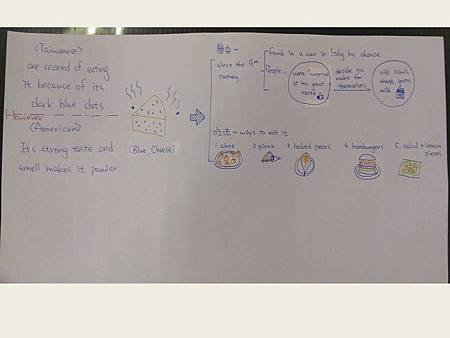 <Taiwanese>
are scared of eating
It because of its
dark blue dots
However
<American>
Its strong taste and
smell makes it powder.
(Blue Cheese)
since the 9th
century
found in a cave in Italy by chance
People
were surprised
at its great
taste
decide to
make for
themselves
with cow's,
sheep, goats
milk
吃法 - ways to eat it
1. alone
2. pizza
3. baked pears
4. hamburgers
5. salad + lemon
pieces